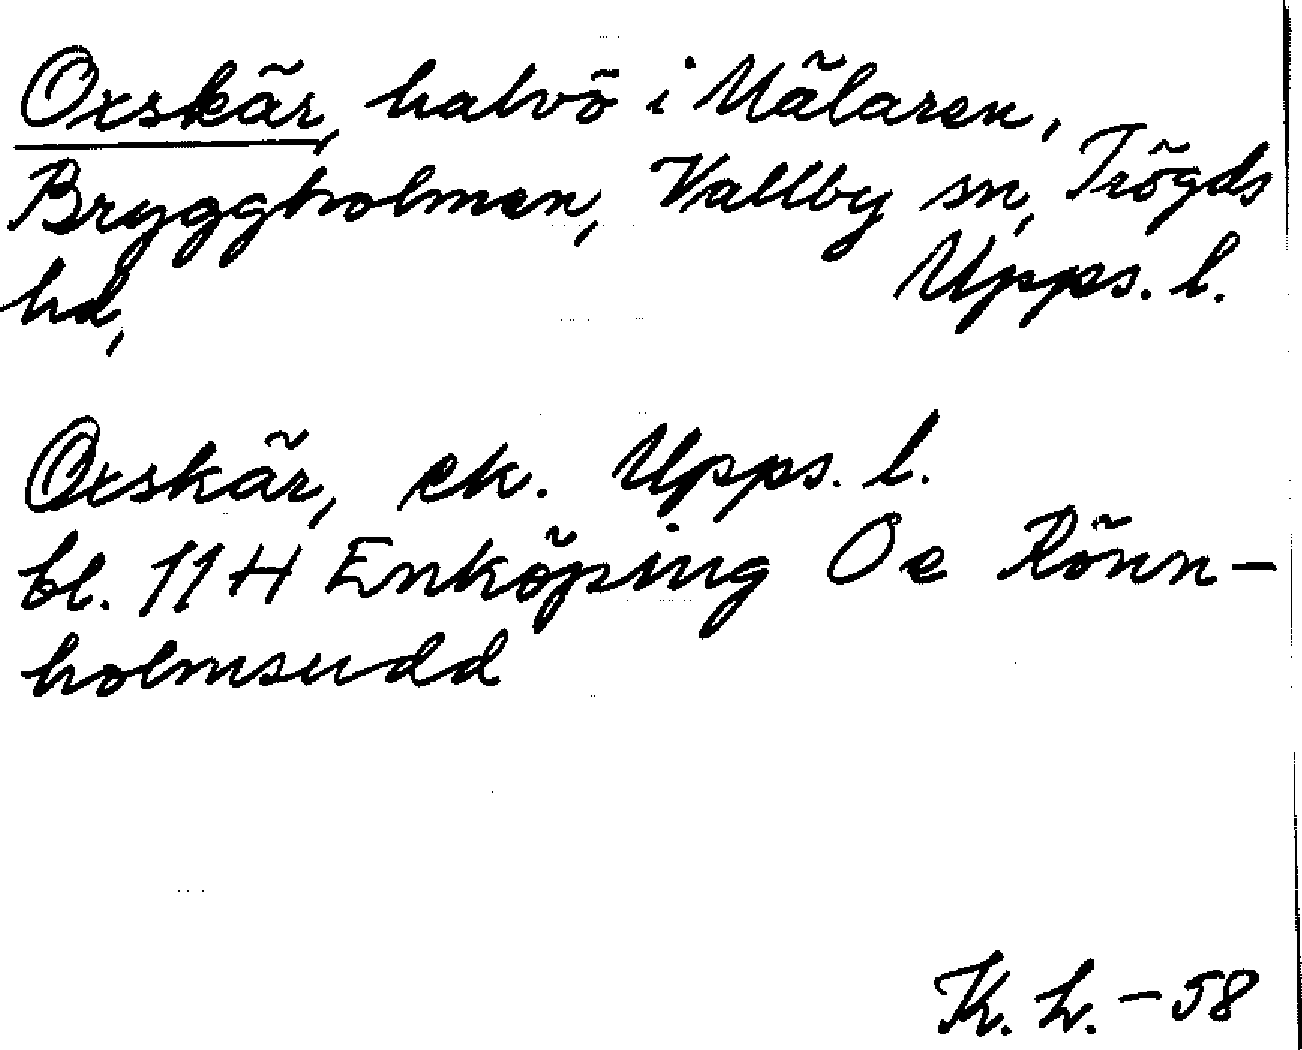 Oxskär, halvö i Mälaren,
Bryggholmen, Vallby sn, Trögds
hd, Upps. l.
Oxskär, ek. Upps. l.
bl. 11H Enköping Oe Rönn-
holmsudd
K. L. - 58